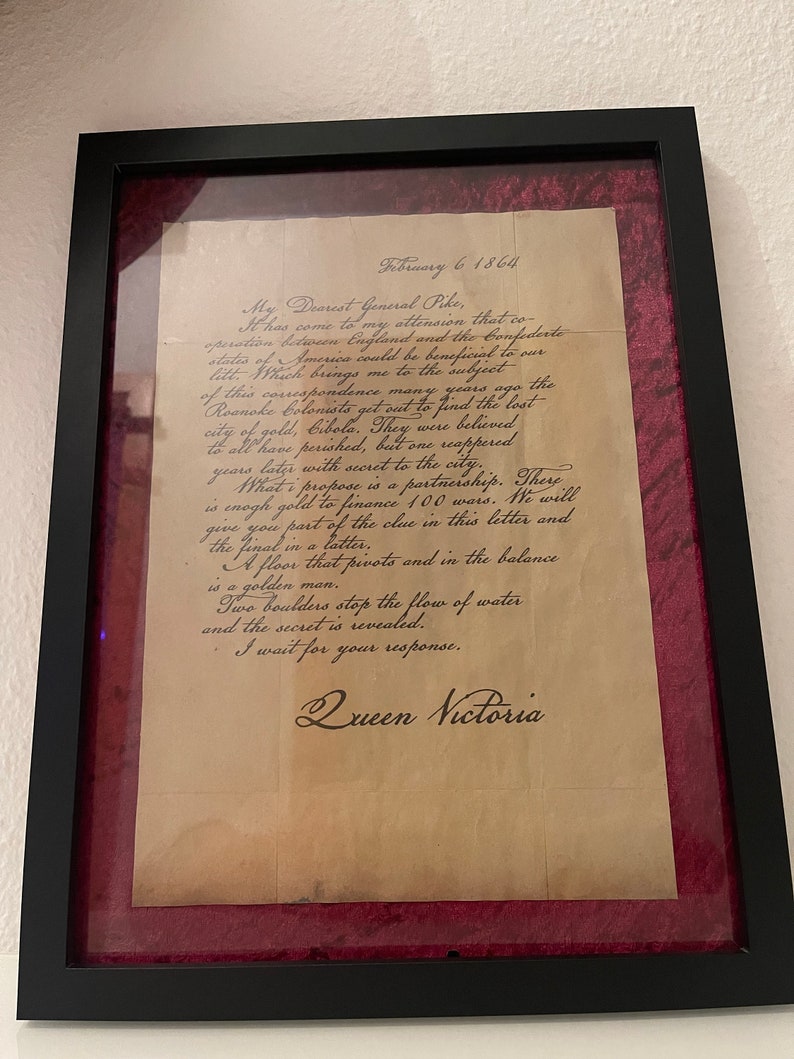 February 6 1864
My Dearest General Pike,
It has come to my attension that co-
operation between England and the Confederte
states of America could be beneficial to our
litt. Which brings me to the subject
of this correspondence many years ago the
Roanoke Colonists get out to find the lost
city of gold, Cibola. They were believed
to all have perished, but one reappered
years later with secret to the city.
What i propose is a partnership. There
is enogh gold to finance 100 wars. We will
give you part of the clue in this letter and
the final in a latter.
A floor that pivots and in the balance
is a golden man.
Two boulders stop the flow of water
and the secret is revealed.
I wait for your response.
Queen Victoria